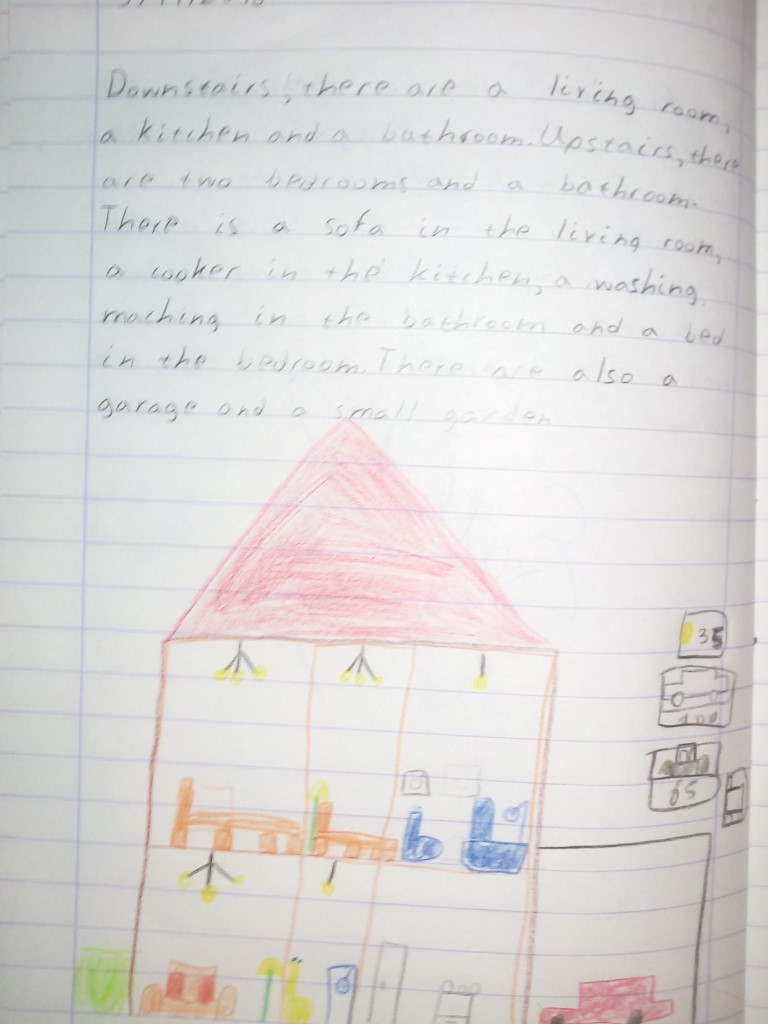 Downstairs, there are a living room,
a kitchen and a bathroom. Upstairs, there
are two bedrooms and a bathroom.
There is a sofa in the living room,
a cooker in the kitchen, a washing
maching in the bathroom and a bed
in the bedroom. There are also a
garage and a small garden
35
100
65